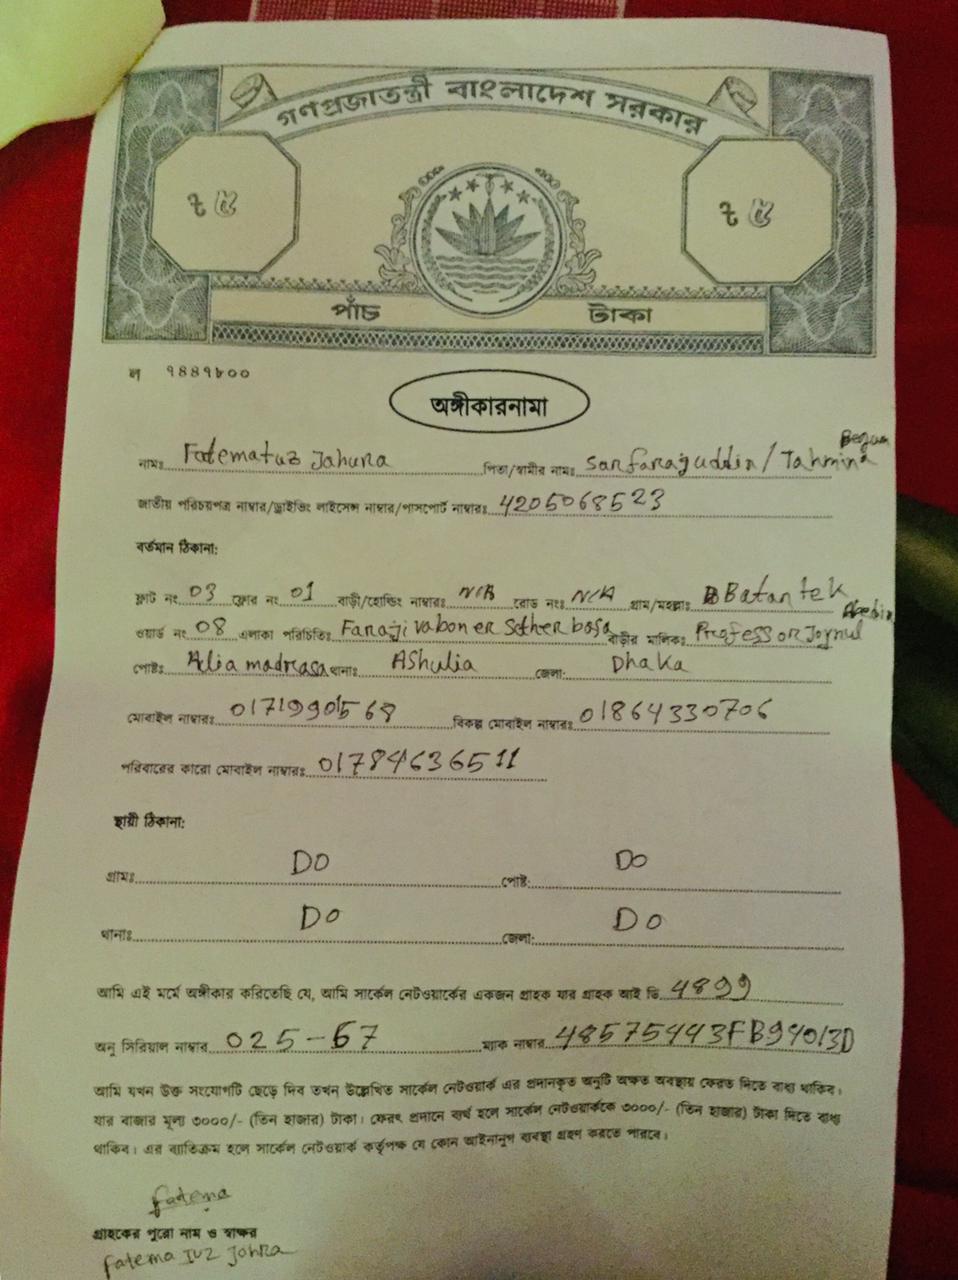 গণপ্রজাতন্ত্রী বাংলাদেশ সরকার
৳ ৫ ৳ ৫
পাঁচ টাকা
ল ৭৪৪৭৮০০
অঙ্গীকারনামা
নামঃ Fatematuz Jahura পিতা/স্বামীর নামঃ Sarfarajuddin / Tahmina Begum
জাতীয় পরিচয়পত্র নাম্বার/ড্রাইভিং লাইসেন্স নাম্বার/পাসপোর্ট নাম্বারঃ 4205068523
বর্তমান ঠিকানা:
ফ্লাট নং 03 ফ্লোর নং 01 বাড়ী/হোল্ডিং নাম্বারঃ N/A রোড নংঃ N/A গ্রাম/মহল্লাঃ Batan tek
ওয়ার্ড নং 08 এলাকা পরিচিতিঃ Faraji vabon er Sather basa বাড়ীর মালিকঃ Professor Joynul Abedin
পোষ্টঃ Alia madrasa থানাঃ AShulia জেলা: Dhaka
মোবাইল নাম্বারঃ 01719901568 বিকল্প মোবাইল নাম্বারঃ 01864330706
পরিবারের কারো মোবাইল নাম্বারঃ 01784636511
স্থায়ী ঠিকানা:
গ্রামঃ DO পোষ্ট: DO
থানাঃ DO জেলা: DO
আমি এই মর্মে অঙ্গীকার করিতেছি যে, আমি সার্কেল নেটওয়ার্কের একজন গ্রাহক যার গ্রাহক আই ডি 4899
অনু সিরিয়াল নাম্বার 025-67 ম্যাক নাম্বার 48575443FB94013D
আমি যখন উক্ত সংযোগটি ছেড়ে দিব তখন উল্লেখিত সার্কেল নেটওয়ার্ক এর প্রদানকৃত অনুটি অক্ষত অবস্থায় ফেরত দিতে বাধ্য থাকিব।
যার বাজার মূল্য ৩০০০/- (তিন হাজার) টাকা। ফেরৎ প্রদানে ব্যর্থ হলে সার্কেল নেটওয়ার্ককে ৩০০০/- (তিন হাজার) টাকা দিতে বাধ্য
থাকিব। এর ব্যতিক্রম হলে সার্কেল নেটওয়ার্ক কর্তৃপক্ষ যে কোন আইনানুগ ব্যবস্থা গ্রহণ করতে পারবে।
fatema
গ্রাহকের পুরো নাম ও স্বাক্ষর
Fatema TUZ Johra